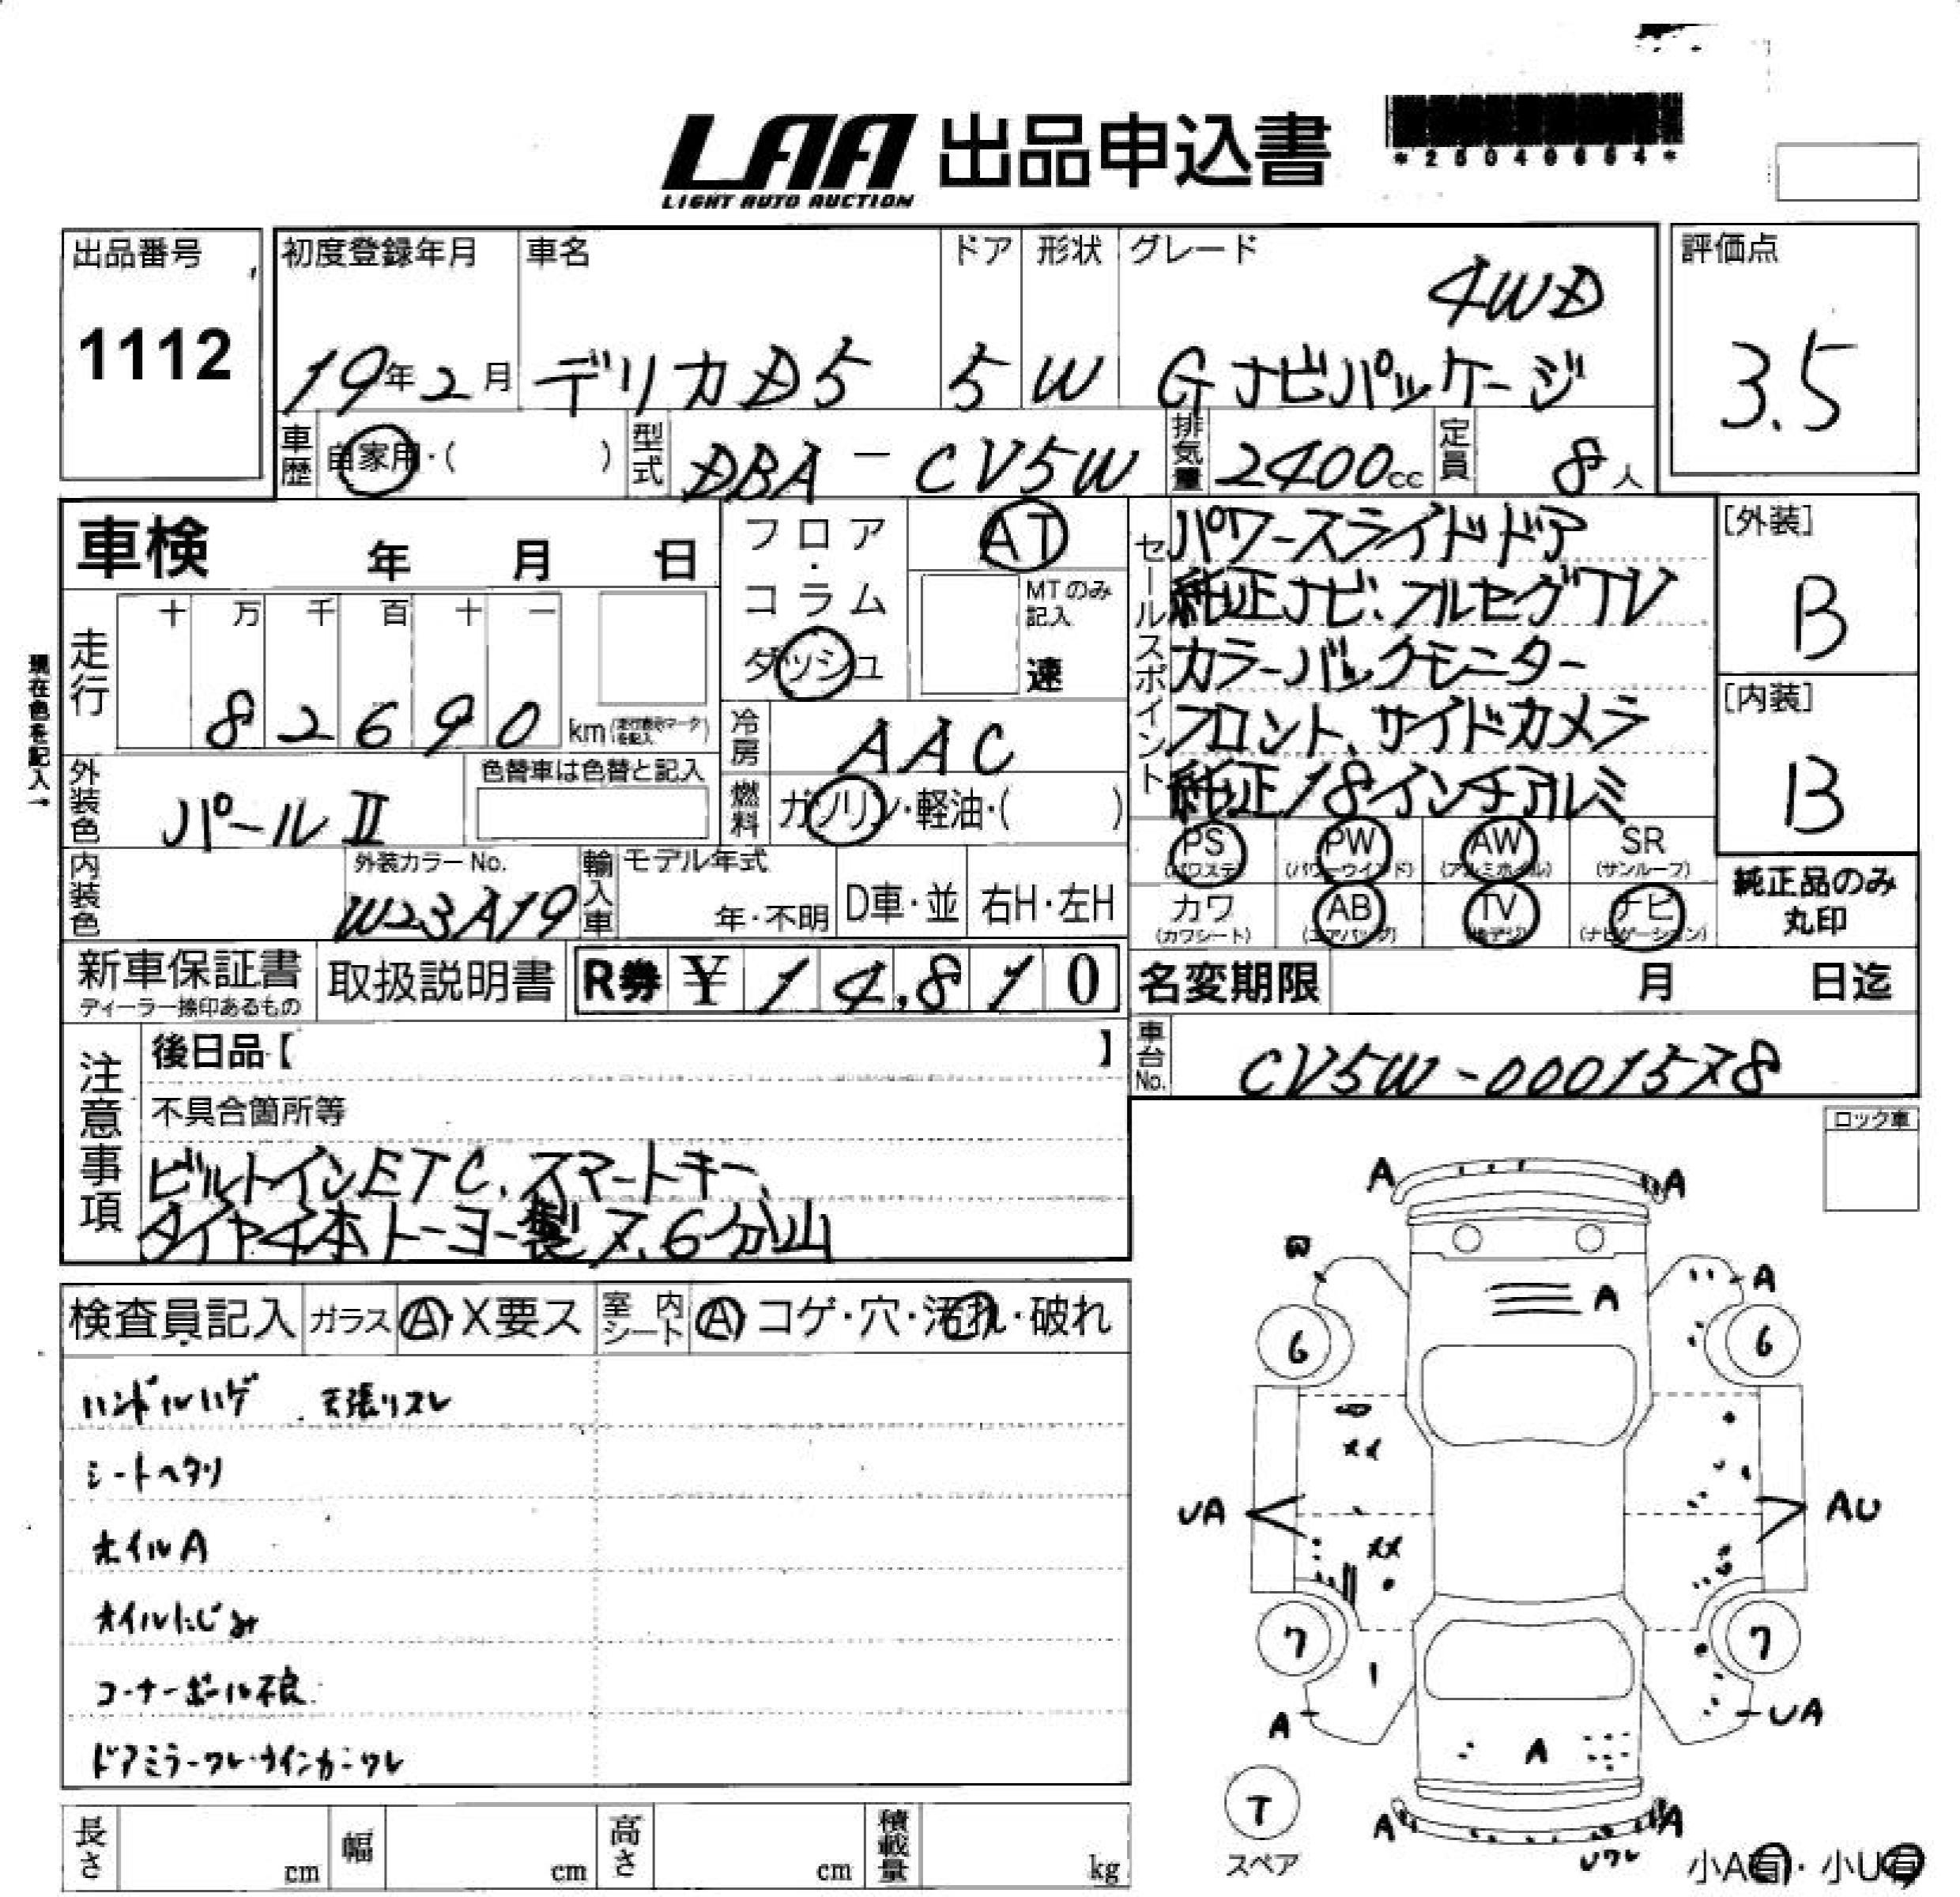 LAA 出品申込書
LIGHT AUTO AUCTION
*25040654*
出品番号
1112
初度登録年月
19年2月
車名
デリカD5
ドア
5
形状
W
グレード
4WD
Gナビパッケージ
評価点
3.5
車歴
自家用・( )
型式
DBA-CV5W
排気量
2400cc
定員
8人
車検 年 月 日
フロア・コラム
ダッシュ
AT
MTのみ記入
速
セールスポイント
パワースライドドア
純正ナビ、フルセグTV
カラーバックモニター
フロント、サイドカメラ
純正18インチアルミ
[外装]
B
[内装]
B
現在色を記入→
走行
十 万 千 百 十 一
8 2 6 9 0 km
冷房
AAC
外装色
パールⅡ
色替車は色替と記入
燃料
ガソリン・軽油・( )
PS (パワステ)
PW (パワーウインド)
AW (アルミホイル)
SR (サンルーフ)
カワ (カワシート)
AB (エアバッグ)
TV (地デジ)
ナビ (ナビゲーション)
純正品のみ
丸印
内装色
外装カラーNo.
W23A19
輸入車
モデル年式
年・不明
D車・並
右H・左H
新車保証書
ディーラー捺印あるもの
取扱説明書
R券 ¥ 14,810
名変期限 月 日迄
車台No.
CV5W-0001578
注意事項
後日品【 】
不具合箇所等
ビルトインETC、スマートキー、
タイヤ4本トーヨー製7.6分山
ロック車
検査員記入
ガラス
A X要ス
室内シート
A コゲ・穴・汚れ・破れ
ハンドルハゲ 天張リスレ
シートヘタリ
ホイルA
オイルにじみ
コーナーポール不良
ドアミラーワレ・ウインカーワレ
A A
A
A
6 6
UA AU
7 7
A UA
A
T
スペア
A A
Uワレ
小A有・小U有
長さ cm
幅 cm
高さ cm
積載量 kg